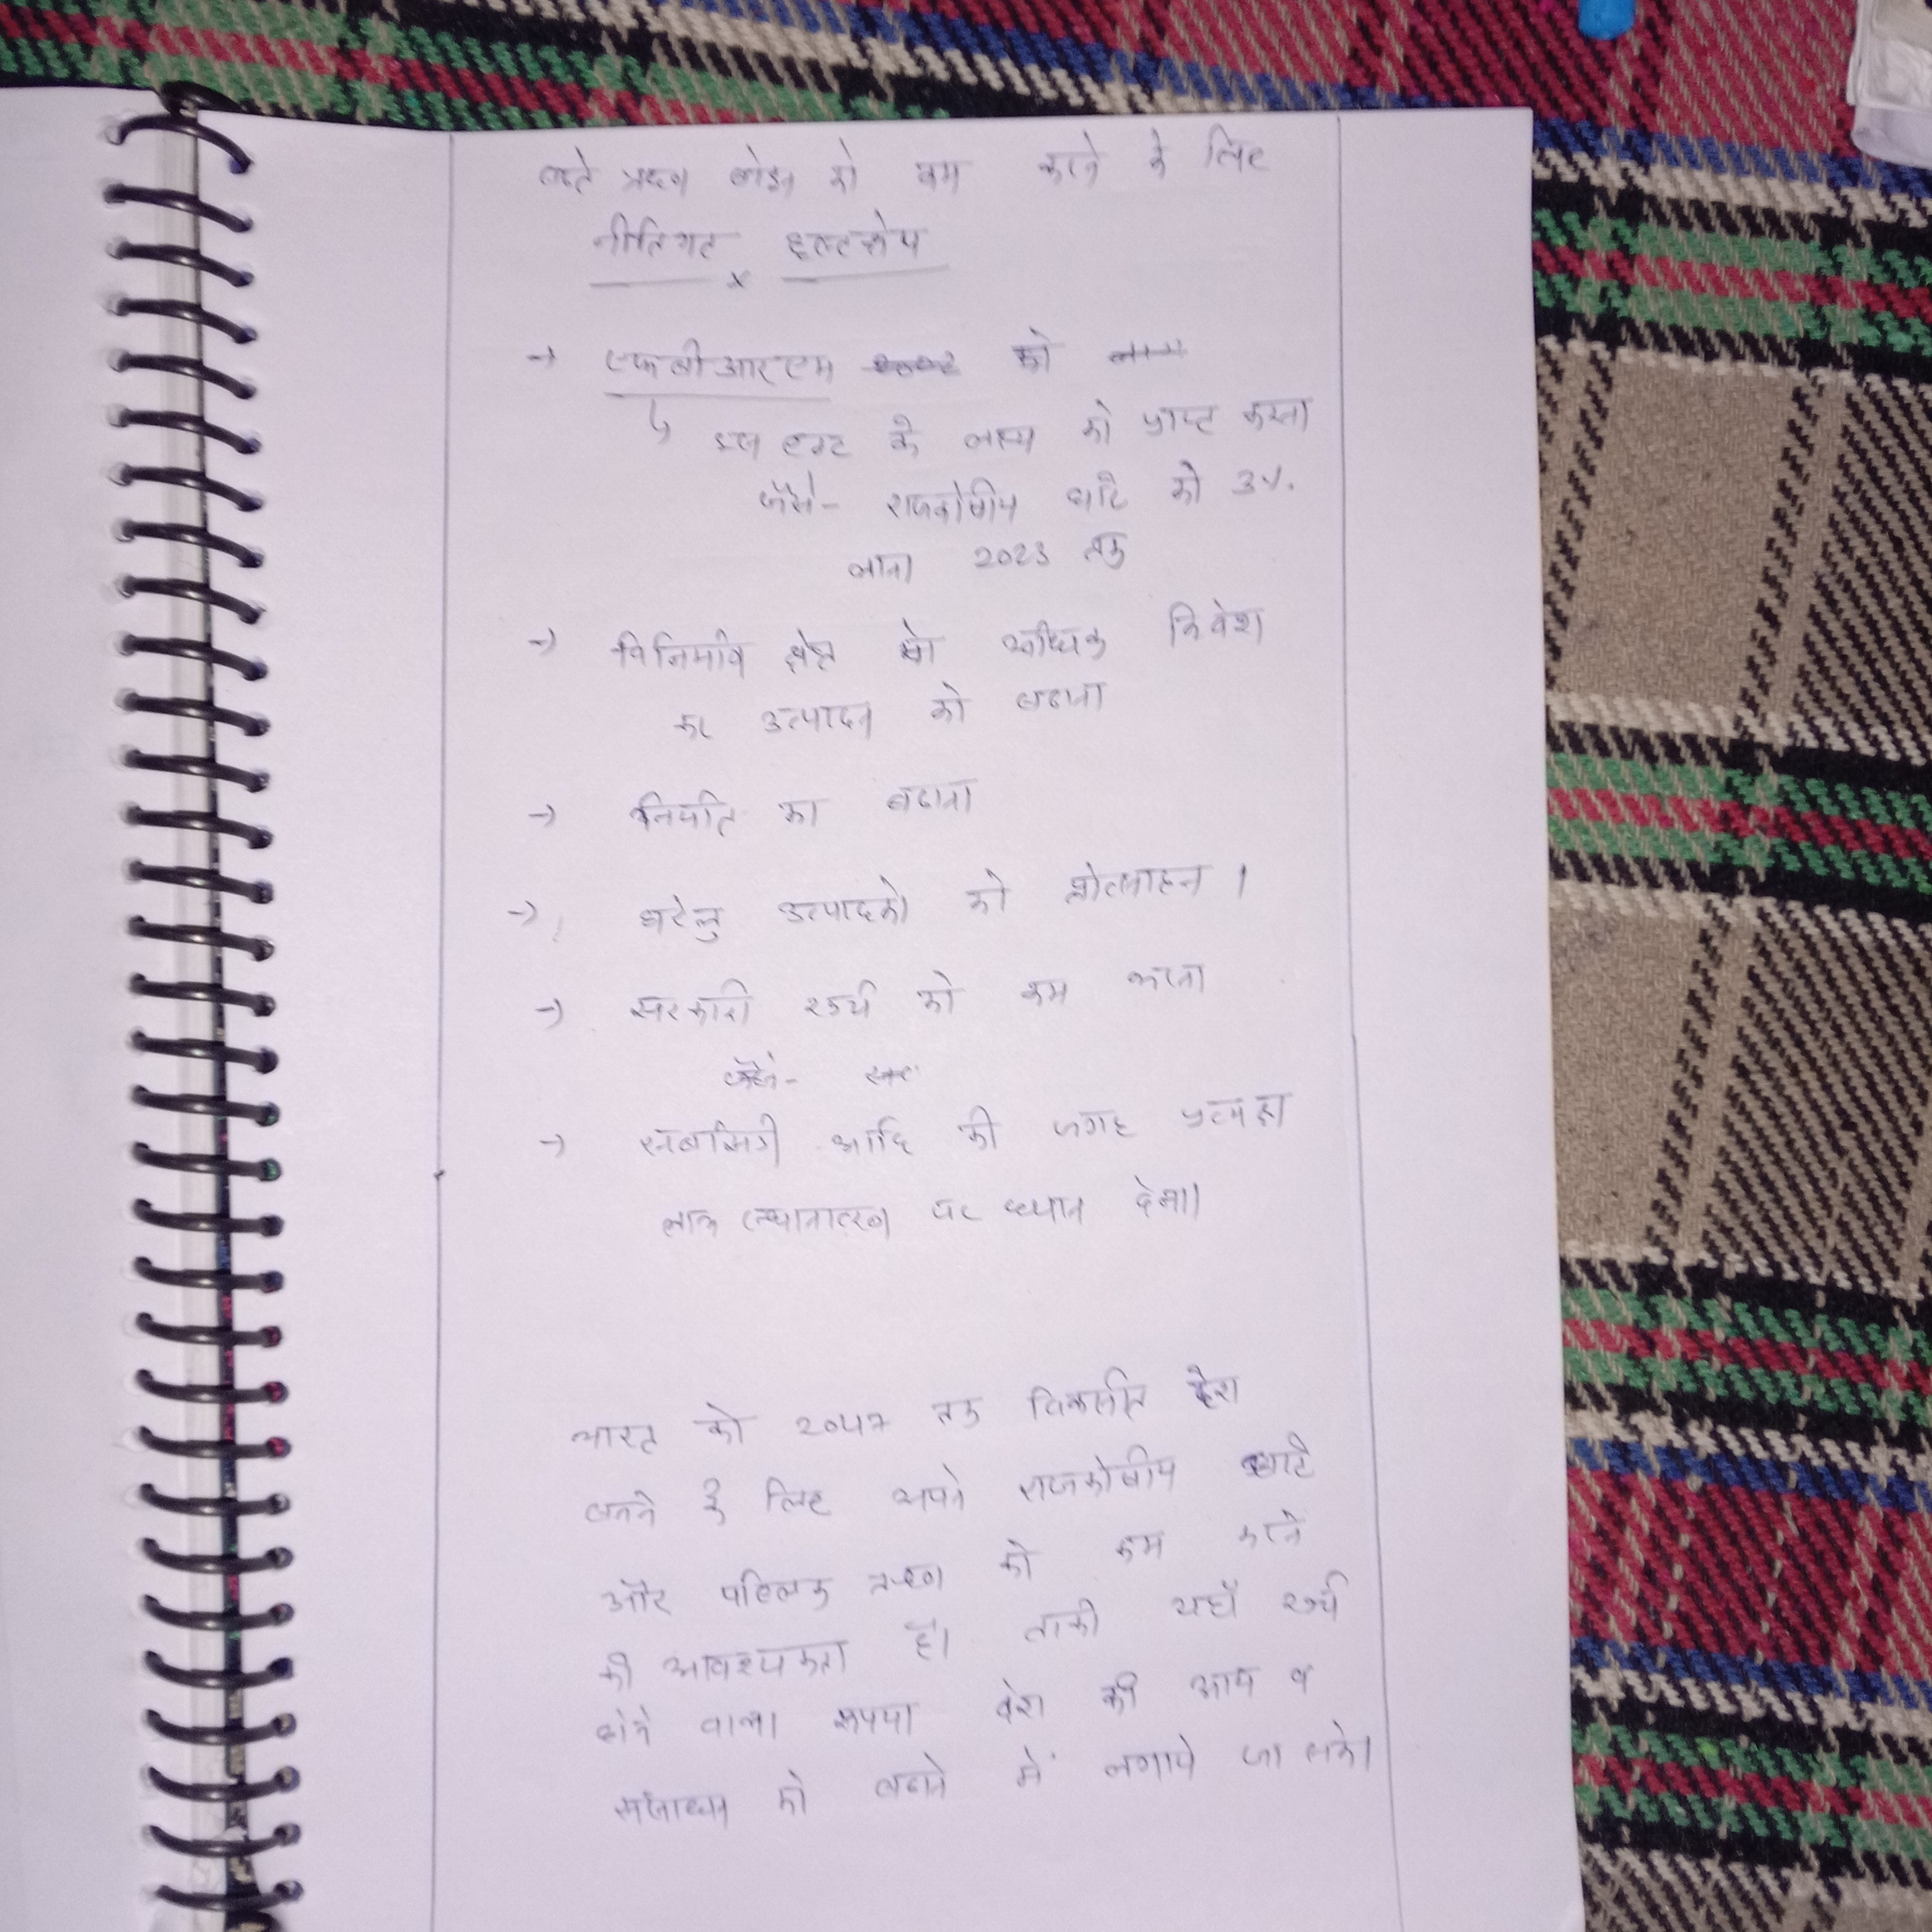 बढते ऋण बोझ को कम करने के लिए
नीतिगत हस्तक्षेप
→ एफ बी आर एम को
इस एक्ट के लक्ष्य को प्राप्त करना
जैसे - राजकोषीय घाटे को 3%
लाना 2023 तक
→ विनिर्माण क्षेत्र को अधिक निवेश
कर उत्पादन को बढाना
→ निर्यात का बढाना
→ घरेलु उत्पादको को प्रोत्साहन ।
→ सरकारी खर्च को कम करना
जैसे -
→ सब्सिडी आदि की जगह प्रत्यक्ष
लाभ स्थानात्रण पर ध्यान देना।
भारत को 2047 तक विकसीत देश
बनने के लिए अपने राजकोषीय घाटे
और पब्लिक ऋण को कम करने
की आवश्यकता है। ताकी यहाँ खर्च
होने वाला रूपया देश की आय व
संसाधन को बढाने में लगाये जा सके।